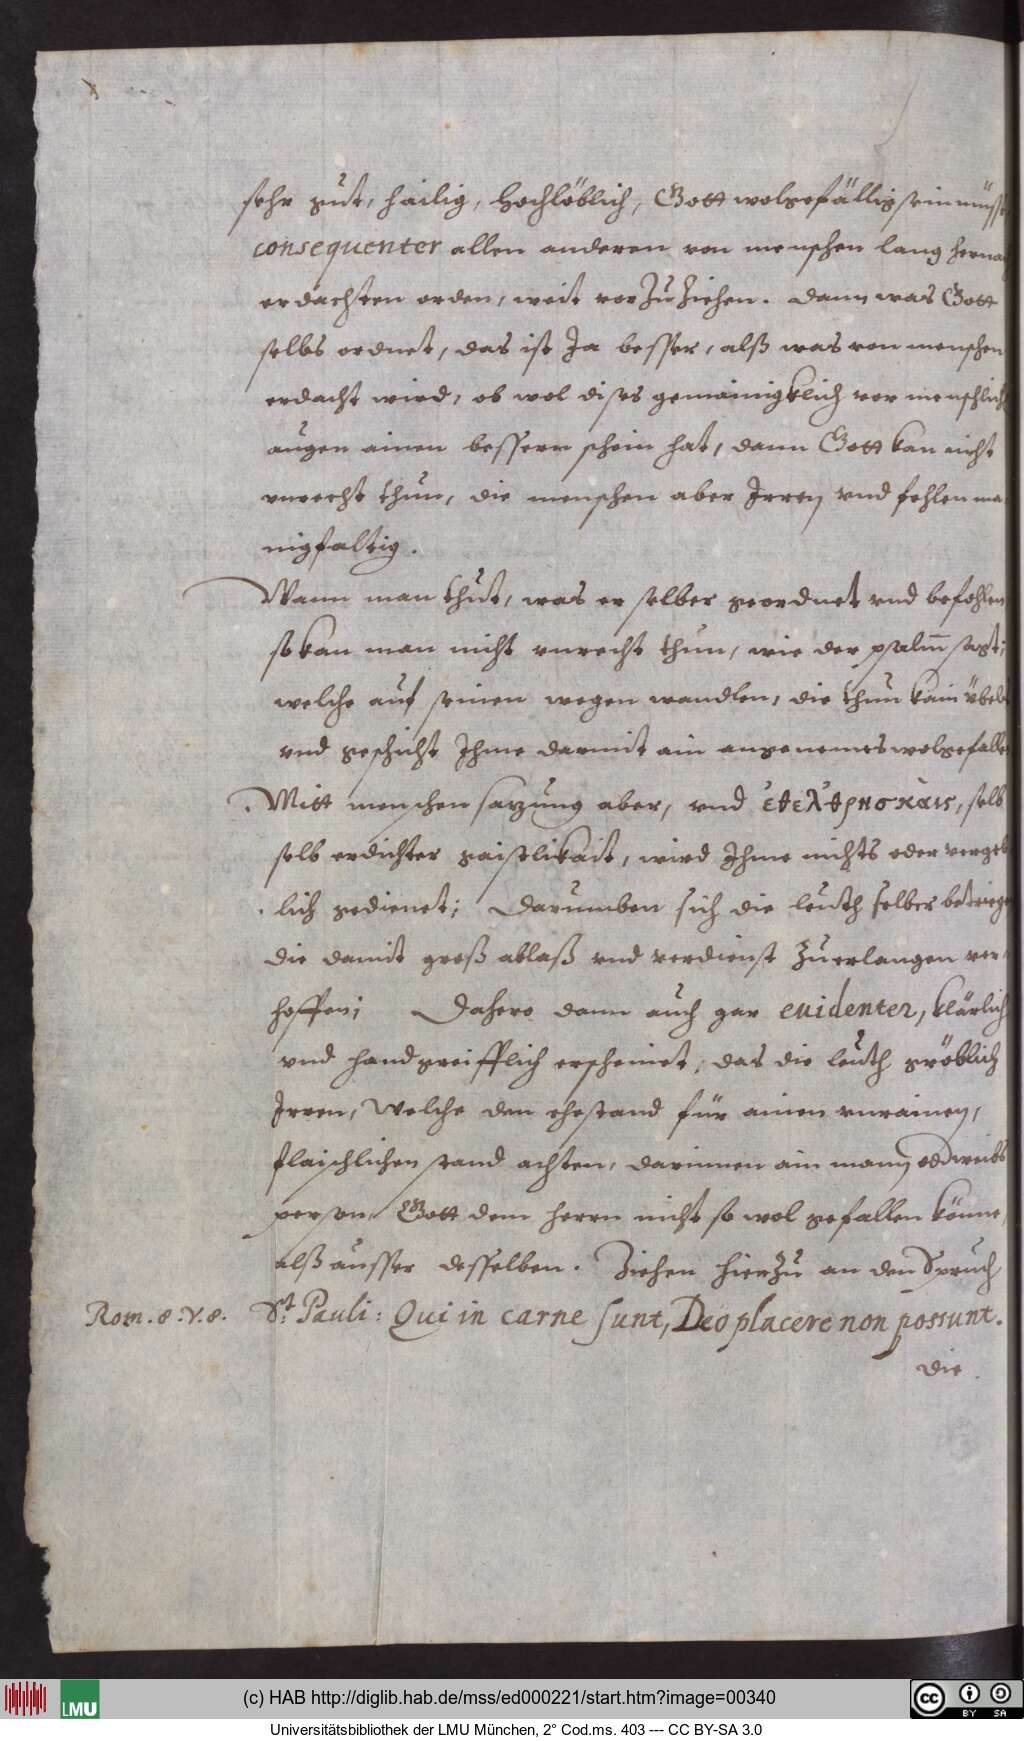 sehr gut, hailig, hochlöblich, Gott wolgefällig sein müss
consequenter allen anderen von menschen lang herna
erdachten orden, weit vor Zu Ziehen. Dann was Gott
selbs ordnet, das ist Ja besser, alß was von menschen
erdacht wird, ob wol dises gemainigklich vor menschlich
augen ainen bessern schein hat, dann Gott kan nicht
vnrecht thun, die menschen aber Irren vnd fehlen ma
nigfaltig.
Wann man thut, was er selber geordnet vnd befohlen
so kan man nicht vnrecht thun, wie der psalm sagt;
welche auf seinen wegen wandlen, die thun kain übels
vnd geschicht Ihme darmit ain angenemes wolgefalle
Mitt menschen satzung aber, vnd ἐθελθρησκάις, selb
selb erdichter gaistlikait, wird Ihme nichts oder vergeb
lich gedienet; Darumben sich die leuth selber betriege
die damit groß ablaß vnd verdienst Zu erlangen ver-
hoffen; Dahero dann auch gar euidenter, klärlich
vnd handgreifflich erscheinet, das die leuth gröblich
Irren, Welche den ehestand für ainen vnrainen,
flaischlichen stand achten, darinnen ain mann od weibs
person, Gott dem herrn nicht so wol gefallen könne,
alß ausser desselben. Ziehen hierzu an den Spruch
Rom. 8. v. 8. St. Pauli: Qui in carne sunt, Deo placere non possunt.
die
(c) HAB http://diglib.hab.de/mss/ed000221/start.htm?image=00340
LMU
cc BY SA
Universitätsbibliothek der LMU München, 2° Cod.ms. 403 --- CC BY-SA 3.0